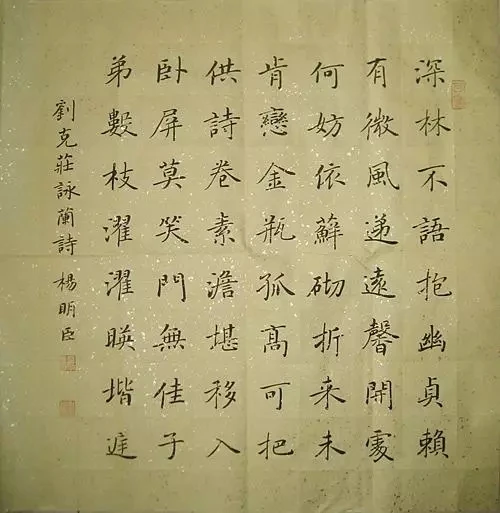 深林不語抱幽貞賴
有微風递遠馨開處
何妨依蘚砌折来未
肯戀金瓶孤高可把
供詩卷素澹堪移入
卧屏莫笑門無佳子
弟數枝濯濯暎堦庭
劉克莊詠蘭詩 楊明臣